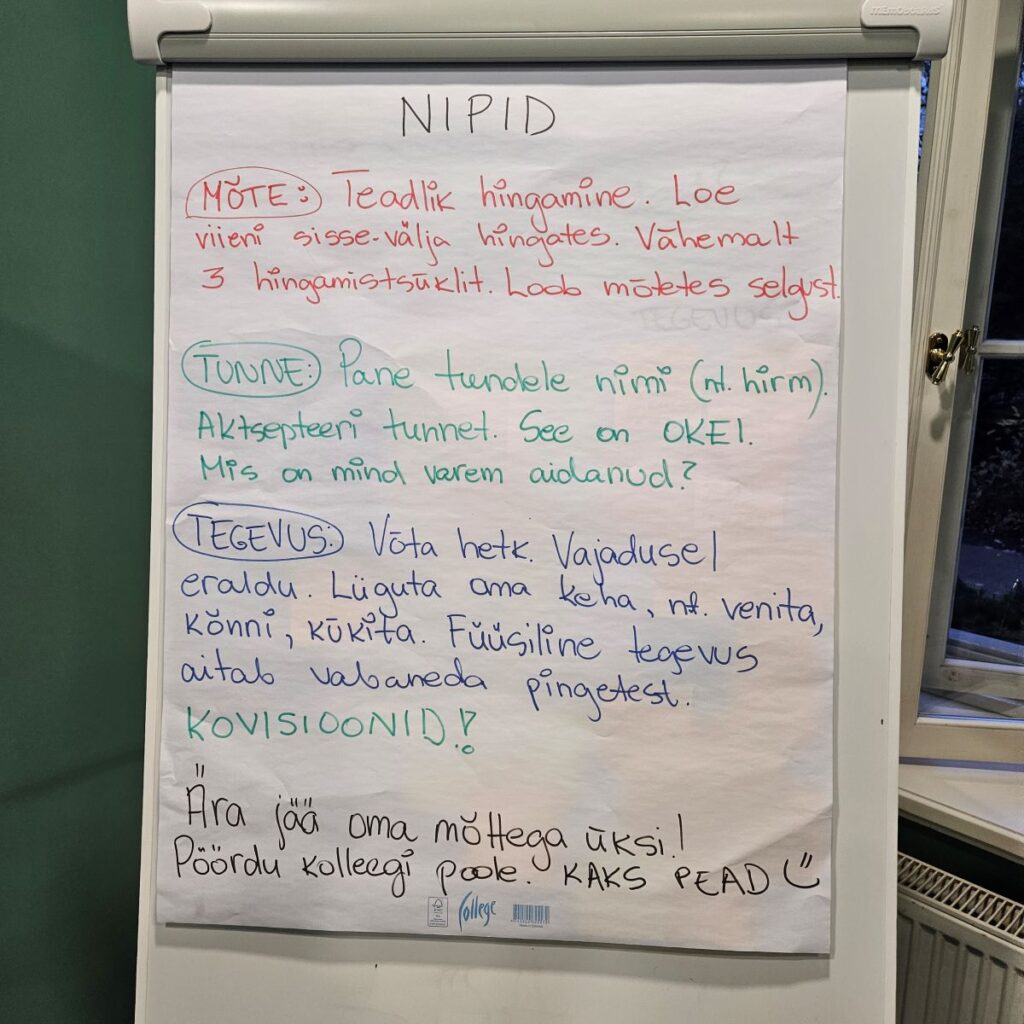 NIPID
MÕTE: Teadlik hingamine. Loe
viieni sisse-välja hingates. Vähemalt
3 hingamistsüklit. Loob mõtetes selgust.
TEGEVUS:
TUNNE: Pane tundele nimi (nt. hirm).
Aktsepteeri tunnet. See on OKEI.
Mis on mind varem aidanud?
TEGEVUS: Võta hetk. Vajadusel
eraldu. Lüguta oma keha, nt. venita,
kõnni, kükita. Füüsiline tegevus
aitab vabaneda pingetest.
KOVISIOONID!?
Ära jää oma mõttega üksi!
Pöördu kolleegi poole. KAKS PEAD
College